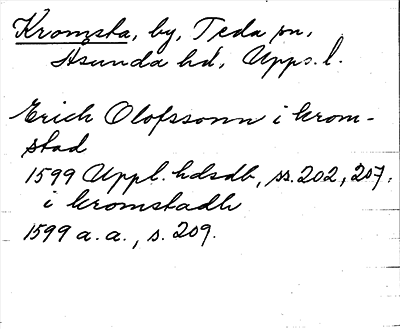 Kromsta, by, Teda sn,
Åsunda hd, Upps. l.
Erich Olofssonn i krom-
stad
1599 Uppl. hdsdb, ss. 202, 207.
i kromstadh
1599 a. a., s. 209.